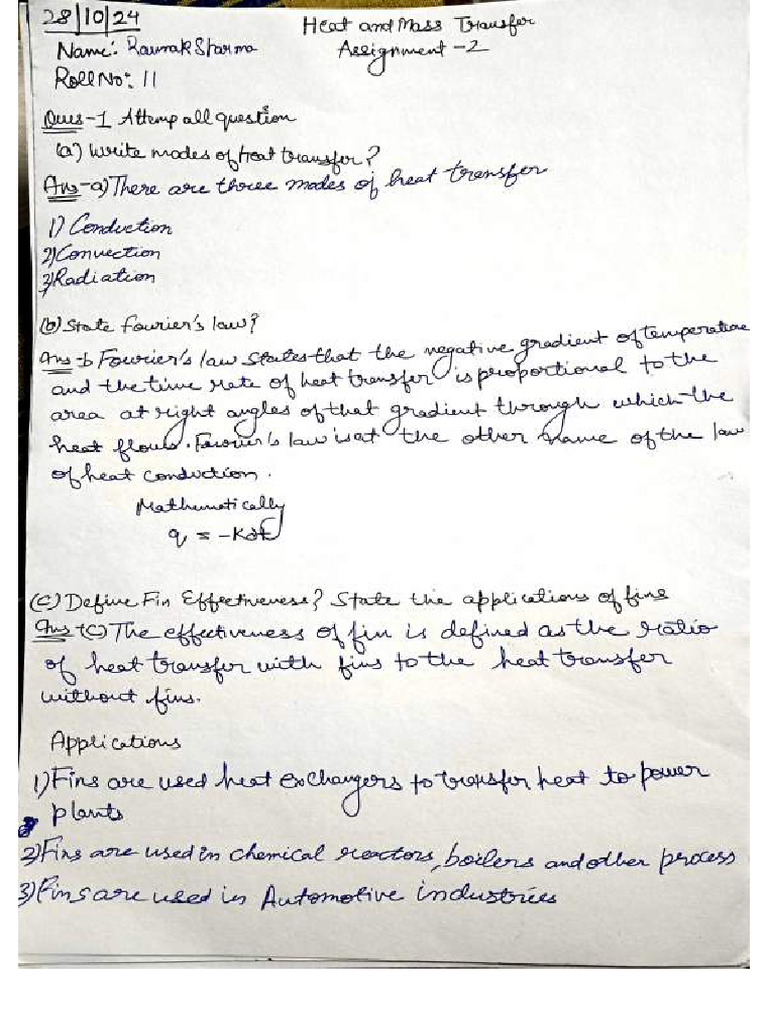 28/10/24
Heat and Mass Transfer
Name: Raunak Sharma
Assignment -2
Roll No: 11
Ques-1 Attemp all question
(a) Write modes of heat transfer?
Ans-a) There are three modes of heat transfer
1) Conduction
2) Convection
3) Radiation
(b) State Fourier's law?
Ans-b Fourier's law states that the negative gradient of temperature
and the time rate of heat transfer is proportional to the
area at right angles of that gradient through which the
heat flows. Fourier's law is at the other name of the law
of heat conduction.
Mathematically
q = -K
(C) Define Fin Effectiveness? State the applications of fins
Ans-(C) The effectiveness of fin is defined as the ratio
of heat transfer with fins to the heat transfer
without fins.
Applications
1) Fins are used heat exchangers to transfer heat to power
plants
2) Fins are used in chemical reactors, boilers and other process
3) Fins are used in Automotive industries